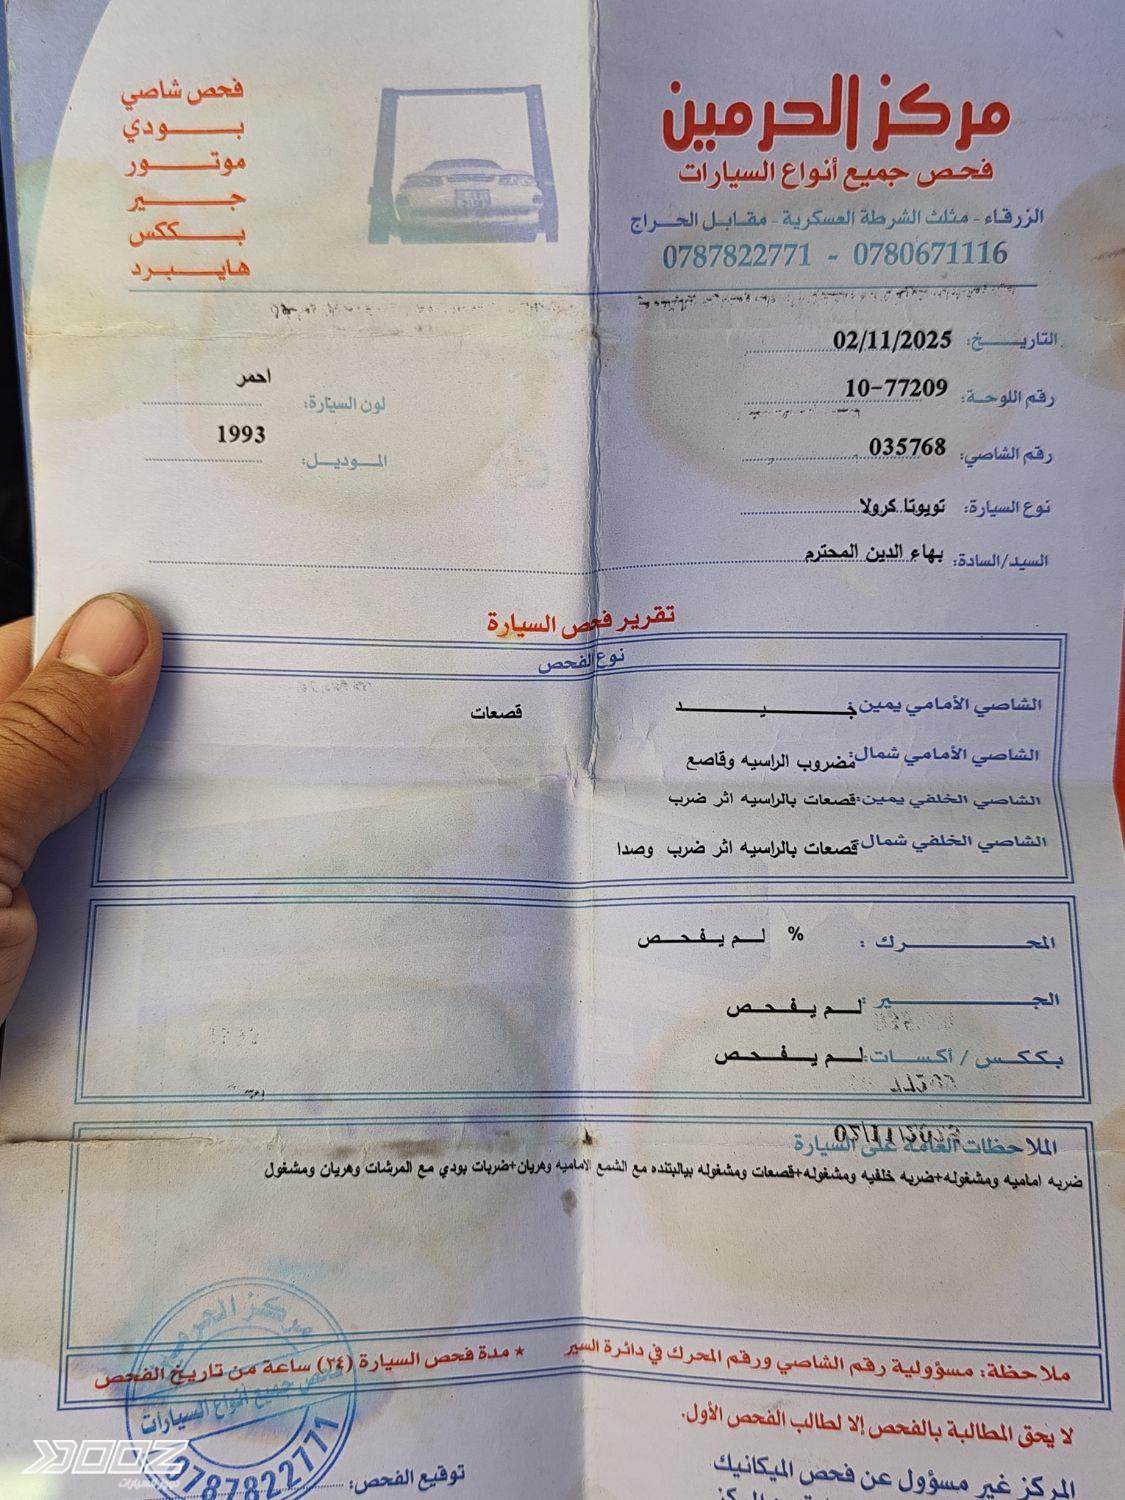 مركز الحرمين
فحص جميع أنواع السيارات
الزرقاء - مثلث الشرطة العسكرية - مقابل الحراج
0787822771 - 0780671116
فحص شاصي
بودي
موتور
جير
بككس
هايبرد
التاريخ: 02/11/2025
رقم اللوحة: 10-77209
لون السيارة: احمر
رقم الشاصي: 035768
الموديل: 1993
نوع السيارة: تويوتا كرولا
السيد/السادة: بهاء الدين المحترم
تقرير فحص السيارة
نوع الفحص
الشاصي الأمامي يمين: جيد قصعات
الشاصي الأمامي شمال: مضروب الراسيه وقاصع
الشاصي الخلفي يمين: قصعات بالراسيه اثر ضرب
الشاصي الخلفي شمال: قصعات بالراسيه اثر ضرب وصدا
المحرك: % لم يفحص
الجير: لم يفحص
بككس / أكسات: لم يفحص
الملاحظات العامة على السيارة
ضربه اماميه ومشغوله+ضربه خلفيه ومشغوله+قصعات ومشغوله بيالبتنده مع الشمع الاماميه وهريان+ضربات بودي مع المرشات وهريان ومشغول
ملاحظة: مسؤولية رقم الشاصي ورقم المحرك في دائرة السير * مدة فحص السيارة (٢٤) ساعة من تاريخ الفحص
لا يحق المطالبة بالفحص إلا لطالب الفحص الأول.
المركز غير مسؤول عن فحص الميكانيك
توقيع الفحص:
مركز الحرمين
فحص جميع أنواع السيارات
0787822771